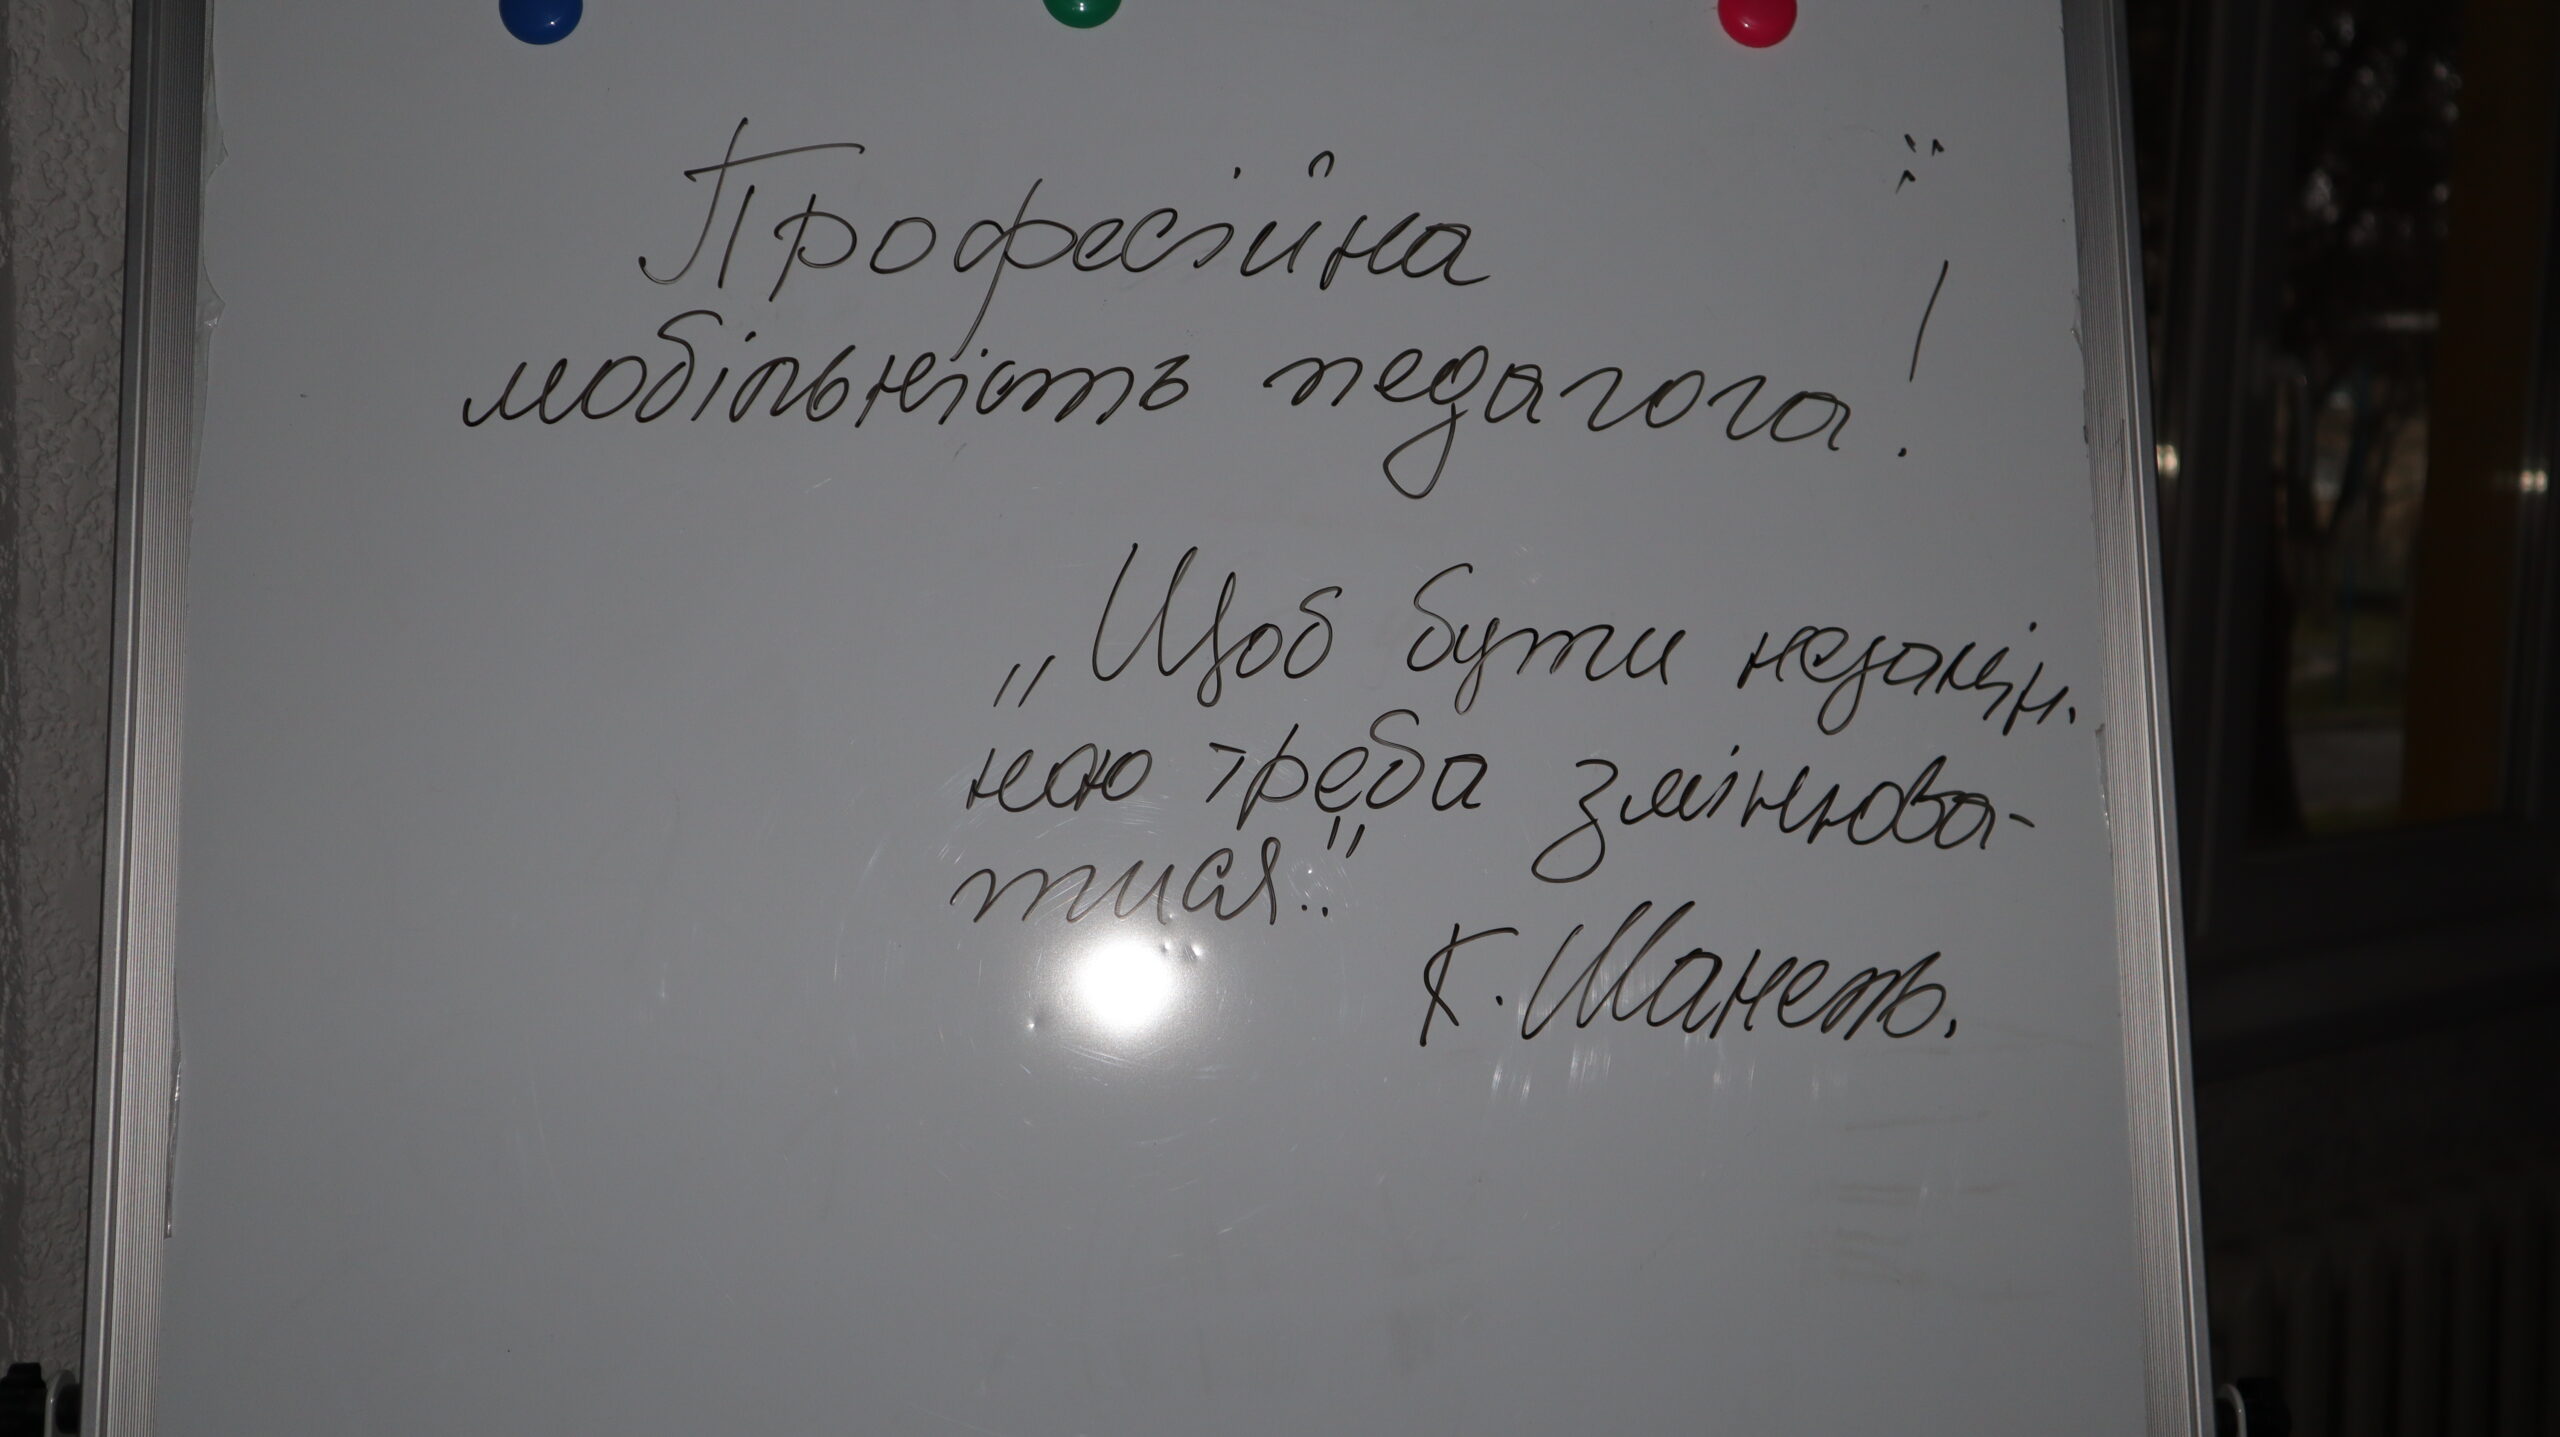 Професійна
мобільність педагога!
„Щоб бути незамін.
ною треба змінюва-
тися.."
К. Шанель.